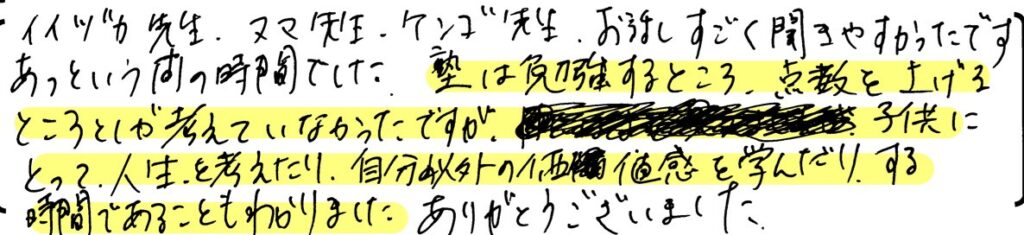 イイヅカ先生、ヌマ先生、ケンゴ先生、お話しすごく聞きやすかったです
あっという間の時間でした。 塾は勉強するところ、点数を上げる
ところとしか考えていなかったですが、 子供に
とって、人生を考えたり、自分以外の価値感を学んだり、する
時間であることもわかりました。 ありがとうございました。